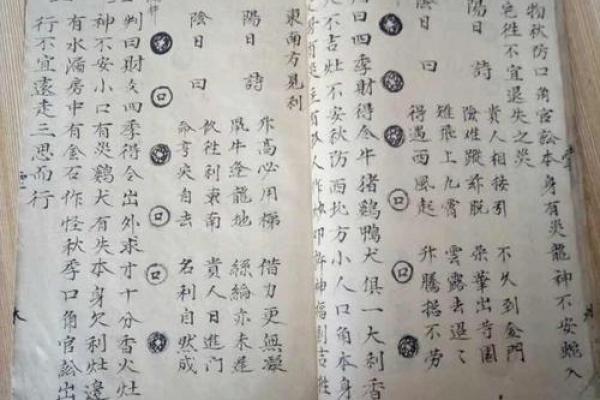 物秋防口角官訟本身有災龍神不安蛇入
宅徃不宜退失之災
陽日詩 貴人相接引 不久到金門
險 蹤 脫 華出 園
陰日曰 雉飛上九霄 雲露去遲々
得遇西風起 升騰摠不勞
口
口
判曰四季財得合牛猪鷄鴨犬俱一大利香
火不吉灶不安秋防西北方小人口角本身
有災主有 人作 叩許神福則吉
東南方見利
陽日詩 升高必用梯 借力更無凝
鼠牛逢龍地 絲綸亦未遲
陰日曰 欲徃利東南 貴人日進門
命亨災自去 名利自然成
口
口
判曰財爻四季得合出外求才十分香火灶
神不安小口有災鷄犬有失本身欠利灶邊
有水漏房中有金石作怪秋季口角官訟出
行不宜遠走三思而行